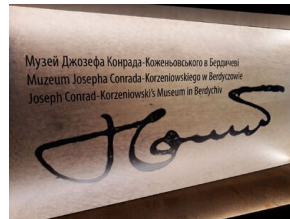 Музей Джозефа Конрада-Коженьовського в Бердичеві
Muzeum Josepha Conrada-Korzeniowskiego w Berdyczowie
Joseph Conrad-Korzeniowski's Museum in Berdychiv